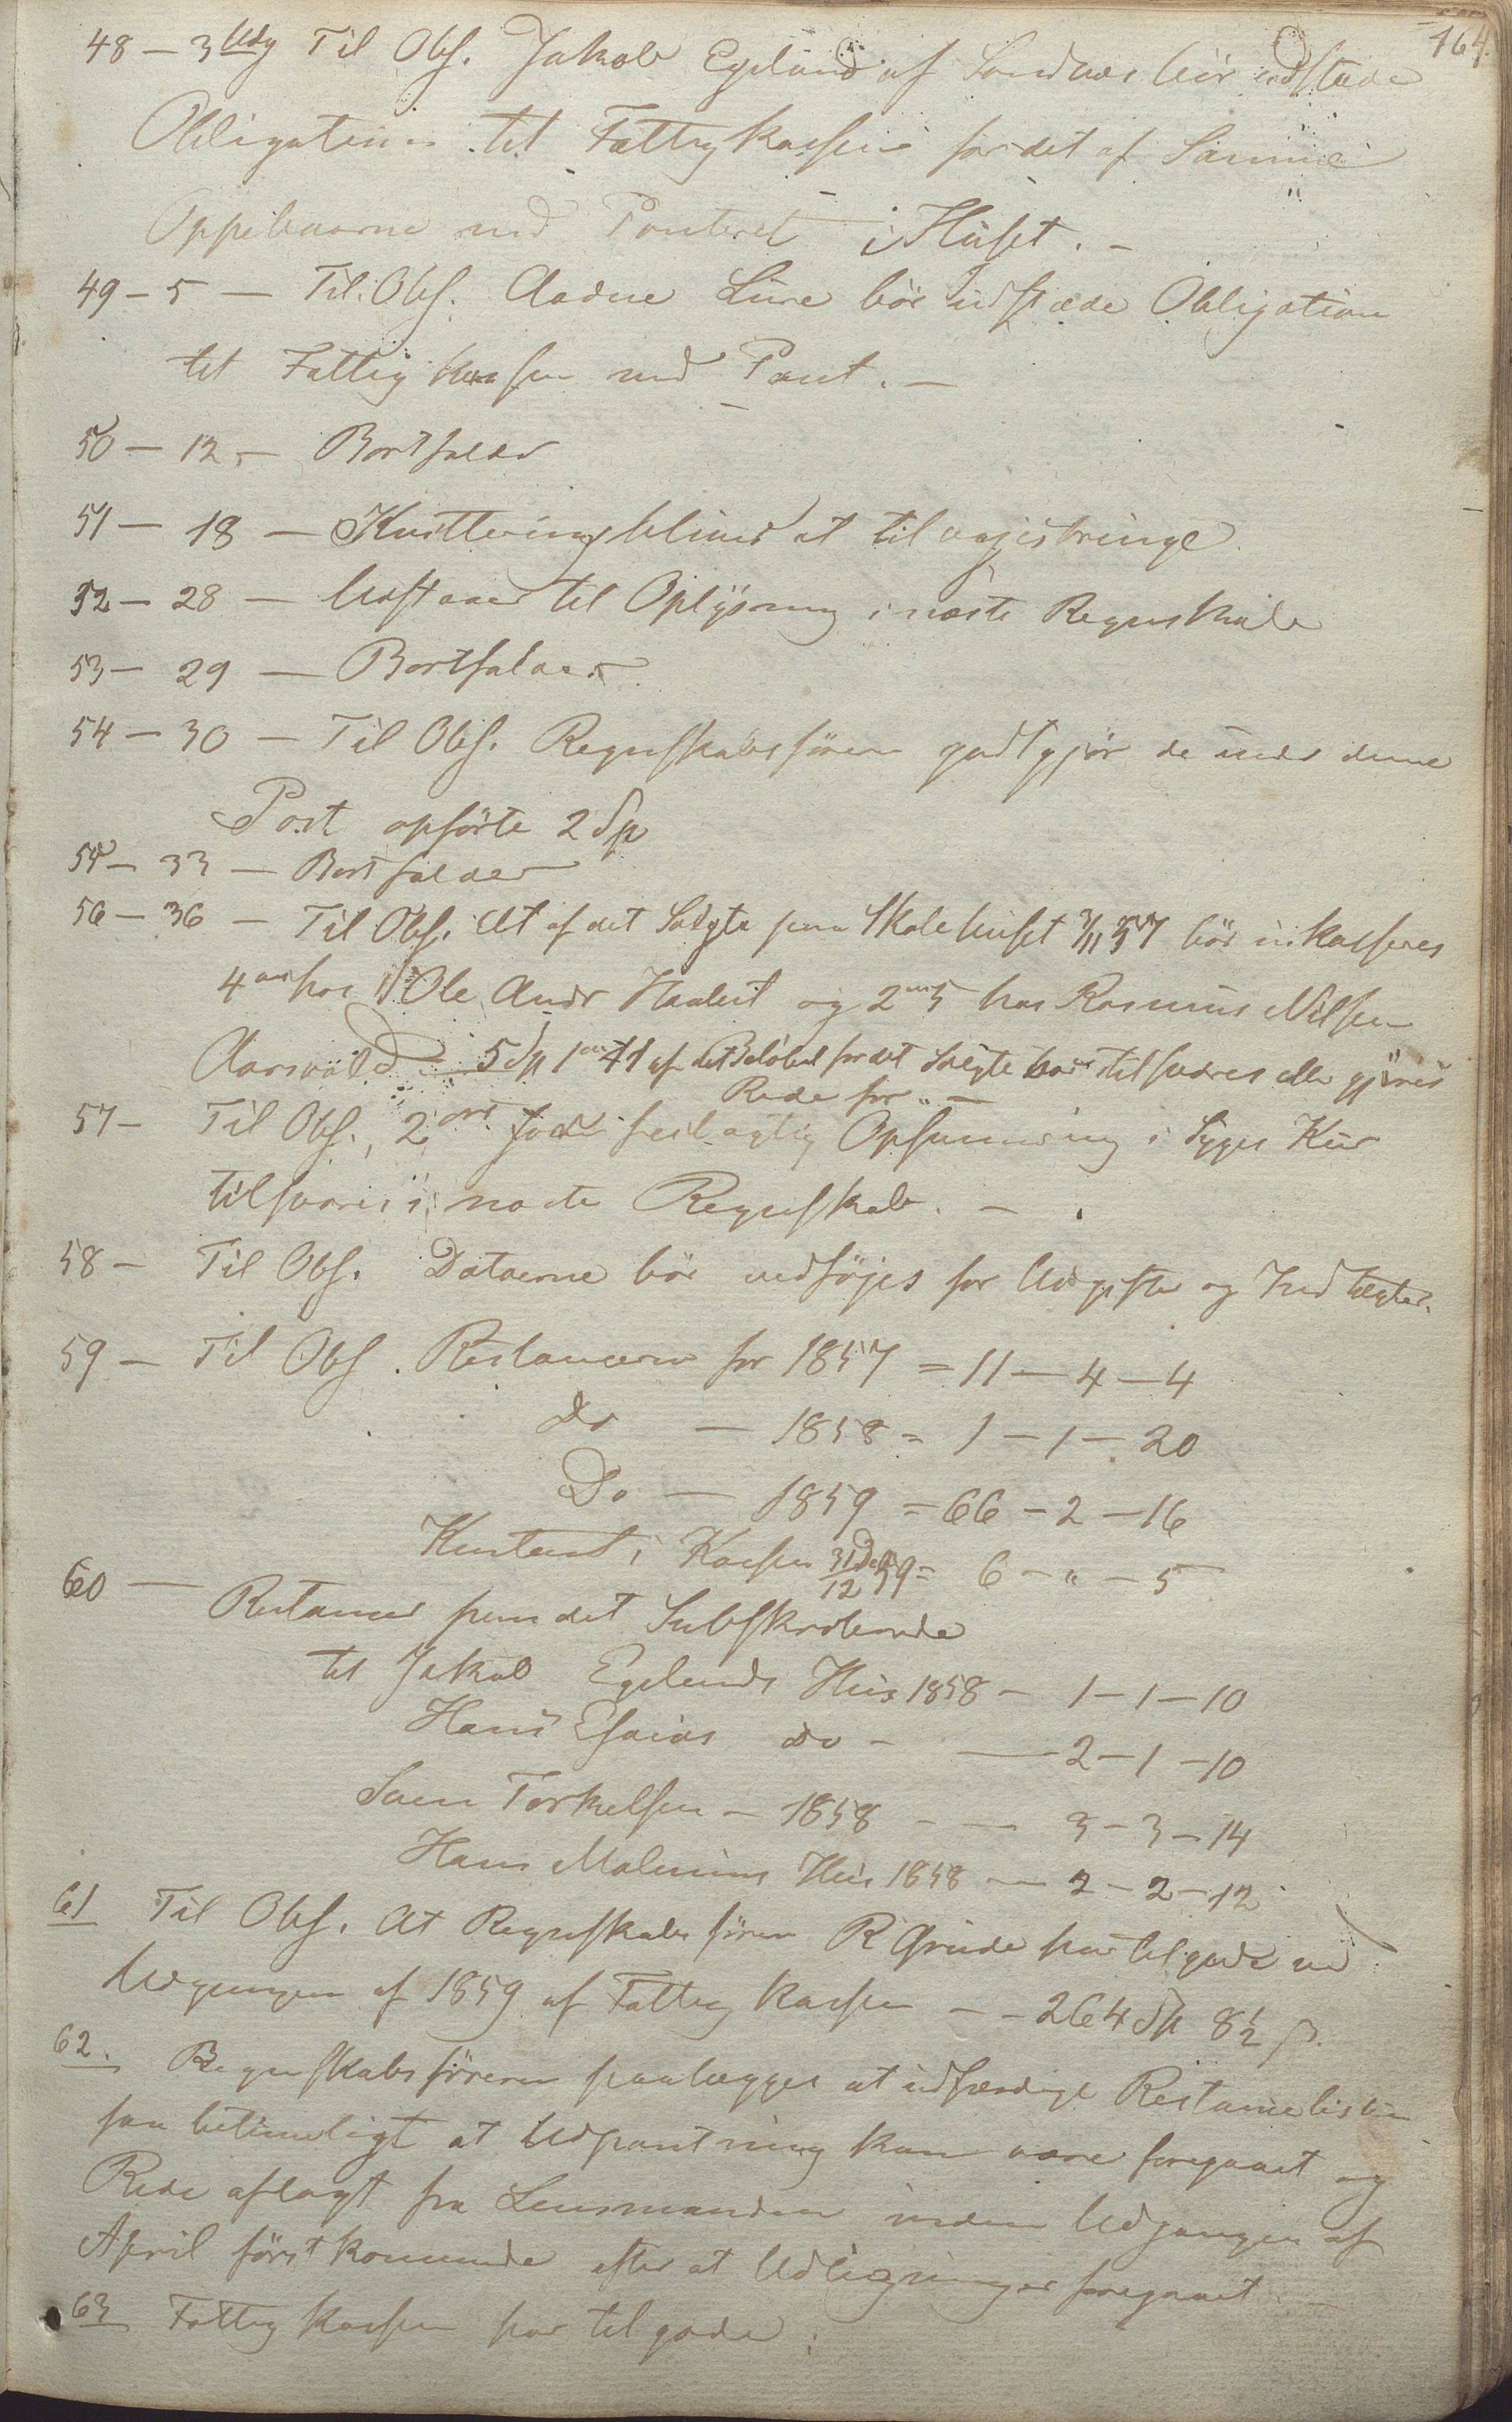 164.
48 – 3 Udg Til Obs. Jakob Egeland af Sandnæs bör udstæde
Obligation til Fattigkassen for det af Samme
Oppebaarne med Panteret i Huset. –
49 – 5 – Til Obs. Aadne Lura bör udstæde Obligation
til Fattigkassen med Pant. –
50 – 12 – Bortfalder
51 – 18 – Kvittering bliver at tilvejebringe
52 – 28 – Udstaaer til Oplysning i næste Regnskab
53 – 29 – Bortfalder
54 – 30 – Til Obs. Regnskabsföreren godtgjör de under denne
Post opförte 2 Sp
55 – 33 – Bortfalder
56 – 36 – Til Obs. At af det Solgte paa Skolehuset 3/11 57 bör inkasseres
4 ort hos Ole Andr Haabet og 2 ort 5 hos Rasmus Nilsen
Aarsvold 5 Sp 1 ort 41 af det Beløbet for det Solgte bør tilsvares eller gjöres
Rede for. –
57 – Til Obs., 2 ort feilagtig Opsummering i Syges Kur
tilsvares i næste Regnskab. –
58 – Til Obs. Datoerne bör vedföjes for Udgifter og Indtægter.
59 – Til Obs. Restancerne for 1857 = 11 – 4 – 4
Do – 1858 = 1 – 1 – 20
Do – 1859 = 66 – 2 – 16
Kontant i Kassen 31/12 59 = 6 – " – 5
60 – Restancer paa det Subskriberede
til Jakob Egelands Hus 1858 – 1 – 1 – 10
Hans Esaias do – – 2 – 1 – 10
Svend Torkelsen – 1858 – – 3 – 3 – 14
Hans Malenius Hus 1858 – 2 – 2 – 12
61 Til Obs. At Regnskabsförer R Grude har tilgode ved
Udgangen af 1859 af Fattigkassen – – 264 Sp 8½ ß.
62. Regnskabsföreren paalægges at udfærdige Restancelisten
saa betimeligt at Udpantning kan være foregaaet og
Rede aflagt fra Lensmanden inden Udgangen af
April förstkommende efter at Udligningen er foregaaet. –
63 Fattigkassen har tilgode: